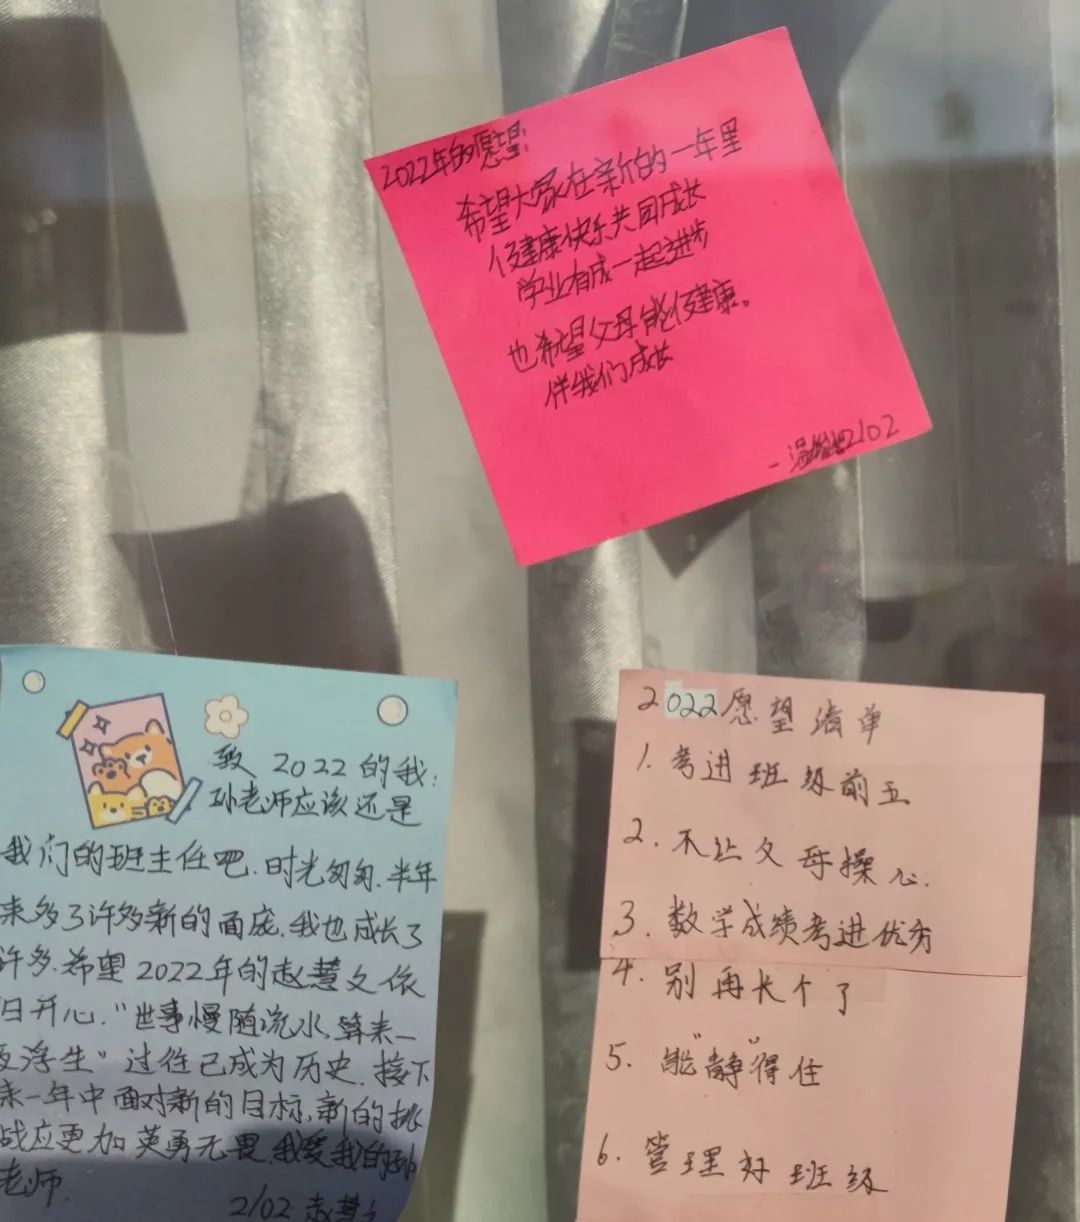 2022年的愿望:
希望大家在新的一年里
健康快乐共同成长
学业有成一起进步
也希望父母能健康。
伴我们成长
2102
致 2022 的我:
孙老师应该还是
我们的班主任吧.时光匆匆.半年
来多了许多新的面庞.我也成长了
许多.希望 2022年的赵慧文依
旧开心."世事慢随流水,算来一
浮生"过往已成为历史.接下
来一年中面对新的目标,新的挑
战应更加英勇无畏.我爱我的孙
老师.
2/02 赵慧文
2022愿望清单
1. 考进班级前五
2. 不让父母操心.
3. 数学成绩考进优秀
4. 别再长个了
5. 能"静"得住
6. 管理好班级